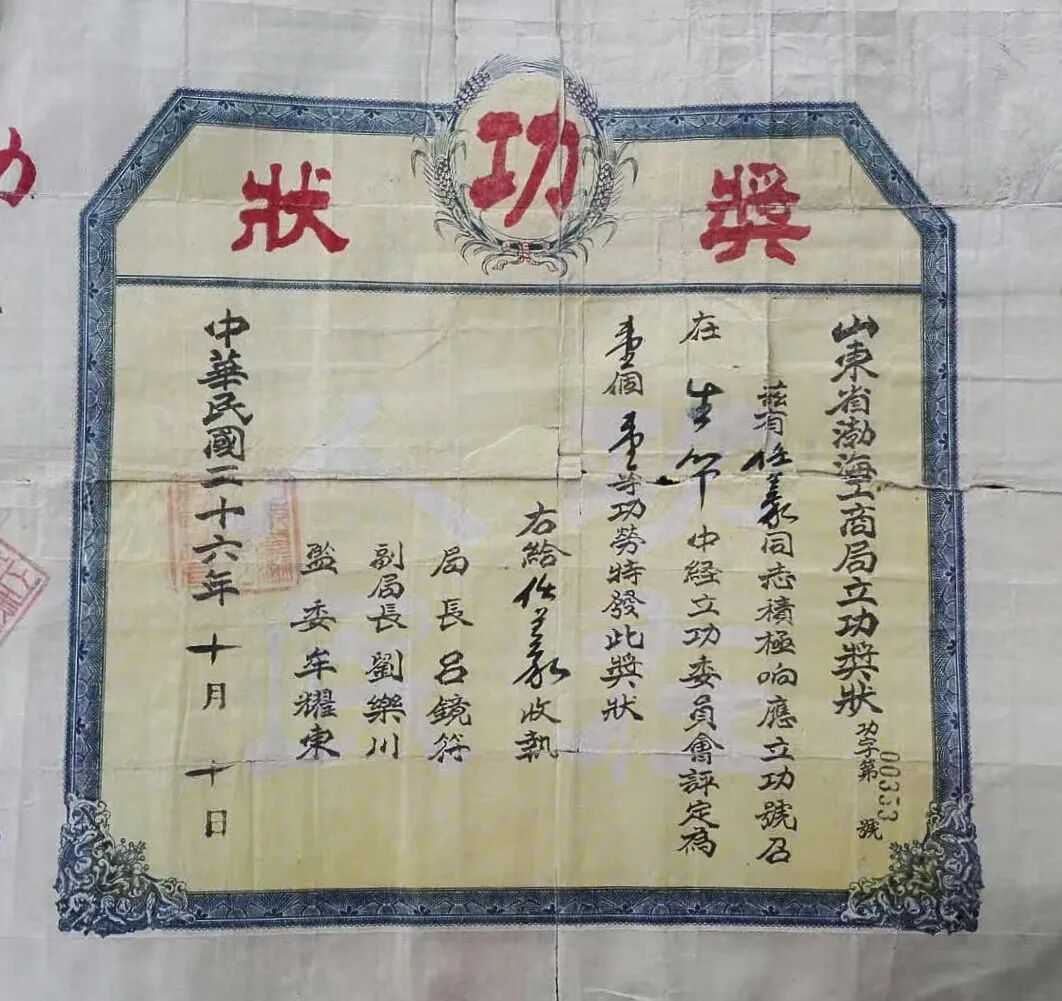 獎功狀
山東省渤海工商局立功獎狀 功字第00353號
茲有任義同志積極响應立功號召
在生命中経立功委員會評定為
壹個壹等功勞特發此獎狀
右給任義收執
局長呂鏡符
副局長劉樂川
監委牟耀東
中華民國三十六年十月十日
功